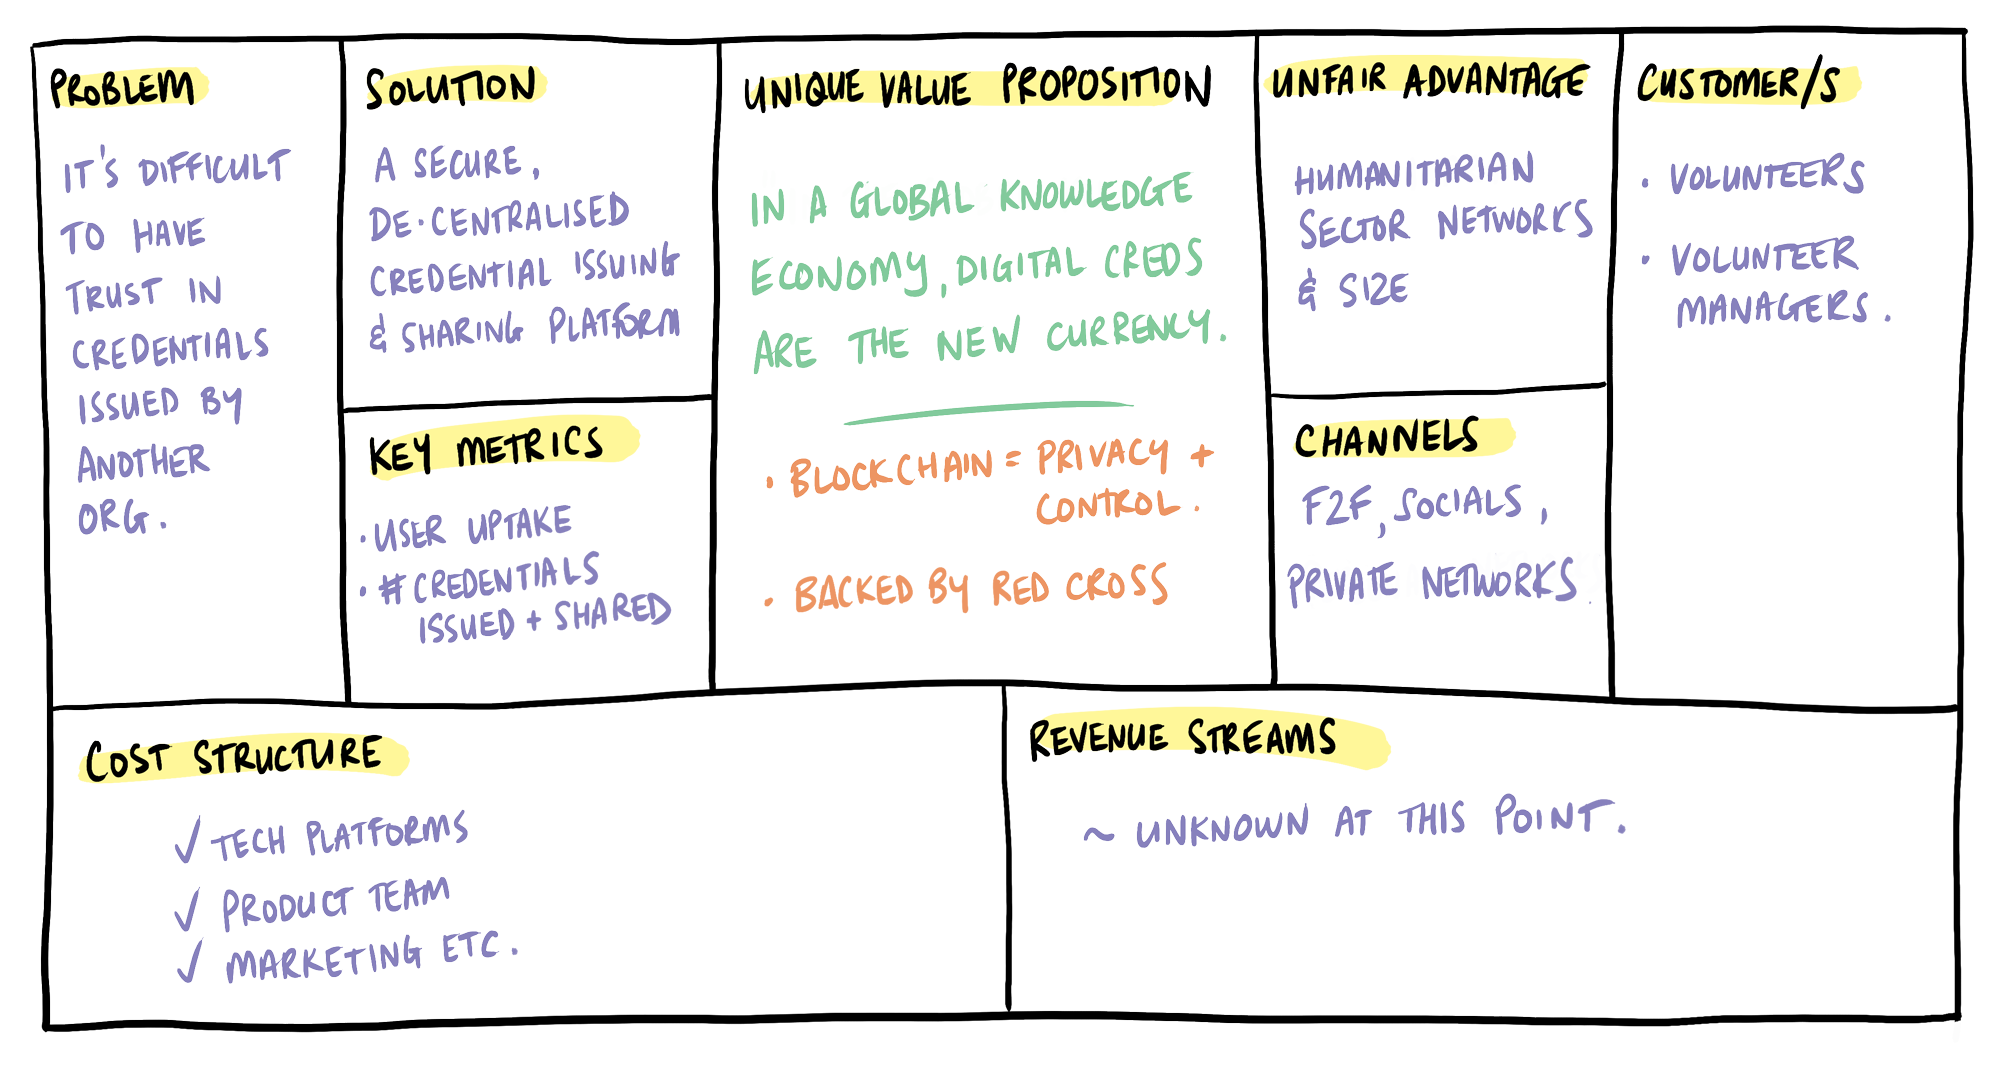 PROBLEM
IT'S DIFFICULT
TO HAVE
TRUST IN
CREDENTIALS
ISSUED BY
ANOTHER
ORG.
SOLUTION
A SECURE,
DE·CENTRALISED
CREDENTIAL ISSUING
& SHARING PLATFORM
KEY METRICS
· USER UPTAKE
· # CREDENTIALS
ISSUED + SHARED
UNIQUE VALUE PROPOSITION
IN A GLOBAL KNOWLEDGE
ECONOMY, DIGITAL CREDS
ARE THE NEW CURRENCY.
· BLOCKCHAIN = PRIVACY +
CONTROL.
· BACKED BY RED CROSS
UNFAIR ADVANTAGE
HUMANITARIAN
SECTOR NETWORKS
& SIZE
CHANNELS
F2F, SOCIALS,
PRIVATE NETWORKS.
CUSTOMER/S
· VOLUNTEERS
· VOLUNTEER
MANAGERS.
COST STRUCTURE
✓ TECH PLATFORMS
✓ PRODUCT TEAM
✓ MARKETING ETC.
REVENUE STREAMS
~ UNKNOWN AT THIS POINT.